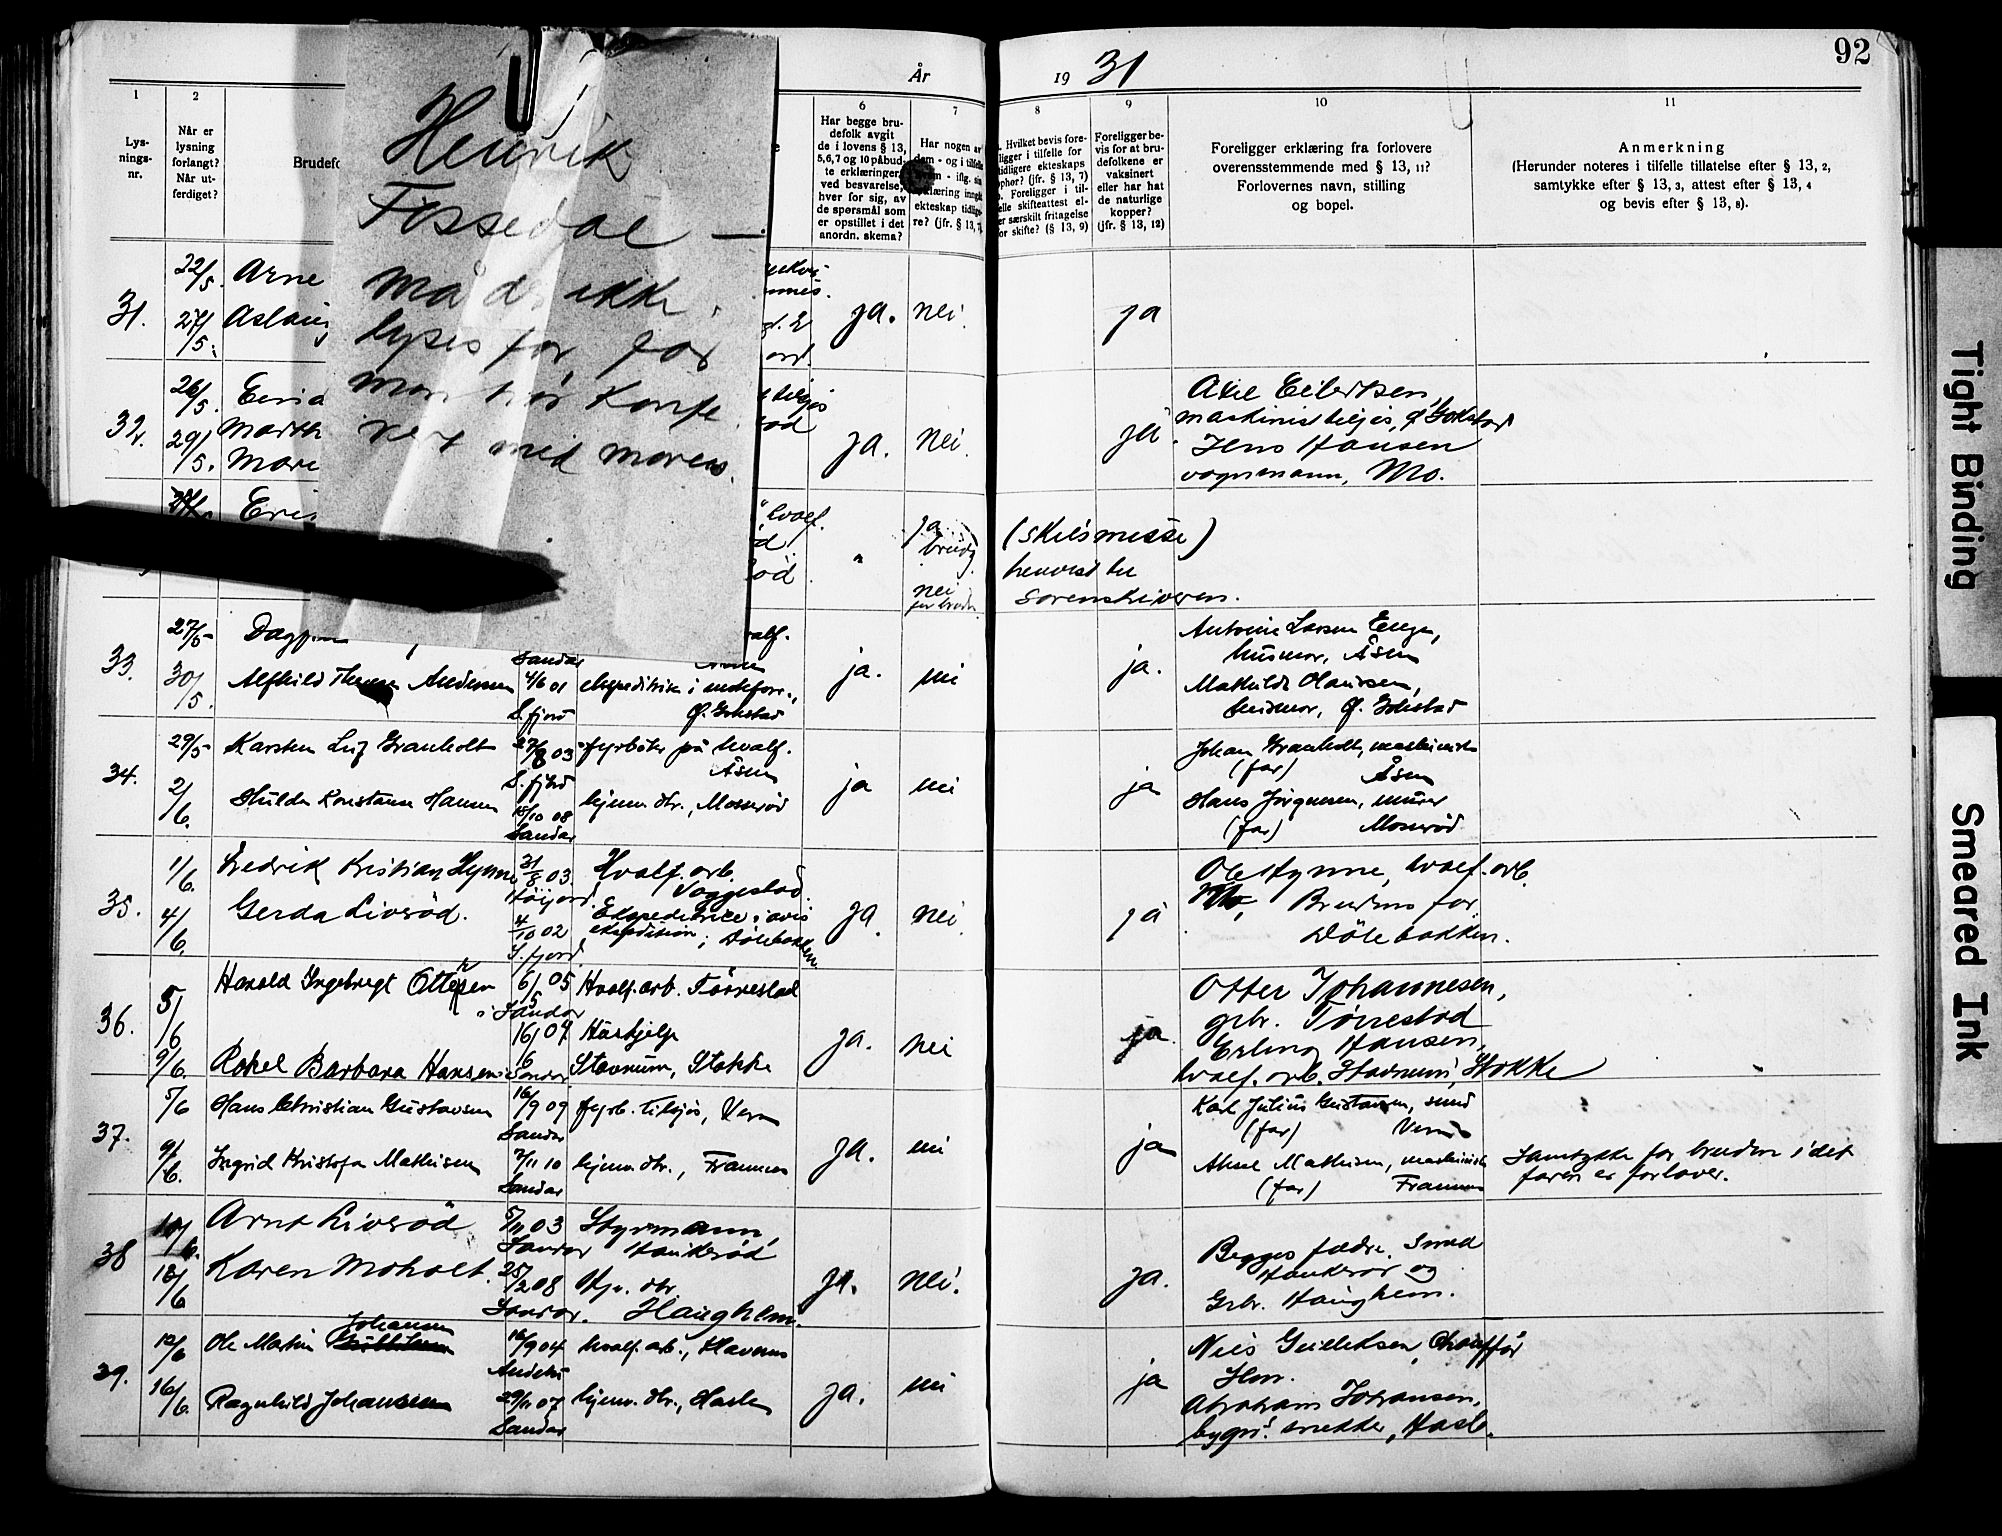 92
År 1931
1
Lys-
nings-
nr.
2
Når er
lysning
forlangt?
Når ut-
ferdiget?
Brudefo
6
Har begge bru-
defolk avgit
de i lovens § 13,
5, 6, 7 og 10 påbud-
te erklæringer,
ved besvarelse,
hver for sig, av
de spørsmål som
er opstillet i det
anordn. skema?
7
Har nogen av
dem - og i tilfelle
- iflg. sin
erklæring inngått
ekteskap tidlige-
re? (jfr. § 13, 7)
8
Hvilket bevis fore-
ligger i tilfelle for
tidligere ekteskaps
ophør? (jfr. § 13, 7)
Foreligger i til-
felle skifteattest el-
er særskilt fritagelse
for skifte? (§ 13, 9)
9
Foreligger be-
vis for at bru-
defolkene er
vaksinert
eller har hat
de naturlige
kopper?
(jfr. § 13, 12)
10
Foreligger erklæring fra forlovere
overensstemmende med § 13, 11?
Forlovernes navn, stilling
og bopel.
11
Anmerkning
(Herunder noteres i tilfelle tillatelse efter § 13, 2,
samtykke efter § 13, 3, attest efter § 13, 4
og bevis efter § 13, 8).
Henrik
Fossedal —
må der ikke
lyses for, før
man har Konfe
rert med moren.
31.
22/5. Arne
27/5. Aslaug
ja. nei. ja
32.
26/5.
29/5. Marth
ja. nei. ja.
Axel Eilertsen,
maskinist tilsjøs, Ø. Gokstad
Jens Hansen
vognmann, Mo.
hvalf.
" ja brudg. nei for brud
(skilsmisse)
henvist til
Sorenskriveren.
33.
27/5 Dagfinn
30/5. Alfhild Andersen
Sandar
4/6 01
S.fjord
Ø. Gokstad
ja. nei ja.
Antonie Larsen Enge,
husmor, Åsen
Mathilde Olausen,
husmor, Ø. Gokstad
34.
29/5 Karsten Granholt 27/8 03 fyrbøter på hvalf.
S. fjord Åsen
2/6. Hulda Konstanse Hansen 15/10 08 hjemv. dtr., Moserød
Sandar
ja nei ja
Johan Granholt, maskinist
(far) Åsen
Hans Jørgensen, murer
(far) Moserød
35.
1/6. Fredrik Kristian Hynne 31/8 03. Hvalf. arb.
Høijord. Toggestad.
4/6. Gerda Livsöd. 4/10 02 Ekspeditrise i avis
S. fjord. ekspedition; Dölebakken
ja. nei. ja
Ole Hynne, hvalf. arb.
Mo, Brudens far
Dölebakken.
36.
5/6 Harald Ingebregt Ottersen 6/5 05 Hvalf. arb. Törrestad
i Sandar
16/6 09 Hushjelp
9/6. Rakel Barbara Hansen Sandar Stavnum, Stokke
ja. nei ja
Otter Johannesen,
grbr. Törrestad
Erling Hansen,
hvalf. arb. Stavnum, Stokke
37.
5/6 Hans Christian Gustavsen 16/9 09 fyrb. tilsjøs, Vera
Sandar
9/6. Ingrid Kristofa Mathisen 7/11 10 hjemv. dtr., Framnes
Sandar
ja. nei ja
Karl Julius Gustavsen, smed
(far) Vera
Aksel Mathisen, maskinist
(far) Framnes
Samtykke for bruden i det
faren er forlover.
38
10/6. Arnt Livsöd 5/11 03 Styrmann,
Sandar Haukerød
13/6 Karen Moholt. 25/2 08 Hjv. dtr
Sandar. Haughem.
ja. nei. ja.
Begges fædre. Smed
Haukerød og
Grbr. Haughem.
39.
12/6 Ole Martin Johansen 16/9 04 hvalf. arb., Havnes
Andebu
16/6. Ragnhild Johansen 29/11 07 hjemv. dtr., Hasle
Sandar
ja. nei ja
Nils Gulliksen, Chauffør
Hvr.
Abraham Johansen,
bygn. snekker, Hasle.
Tight Binding
Smeared Ink